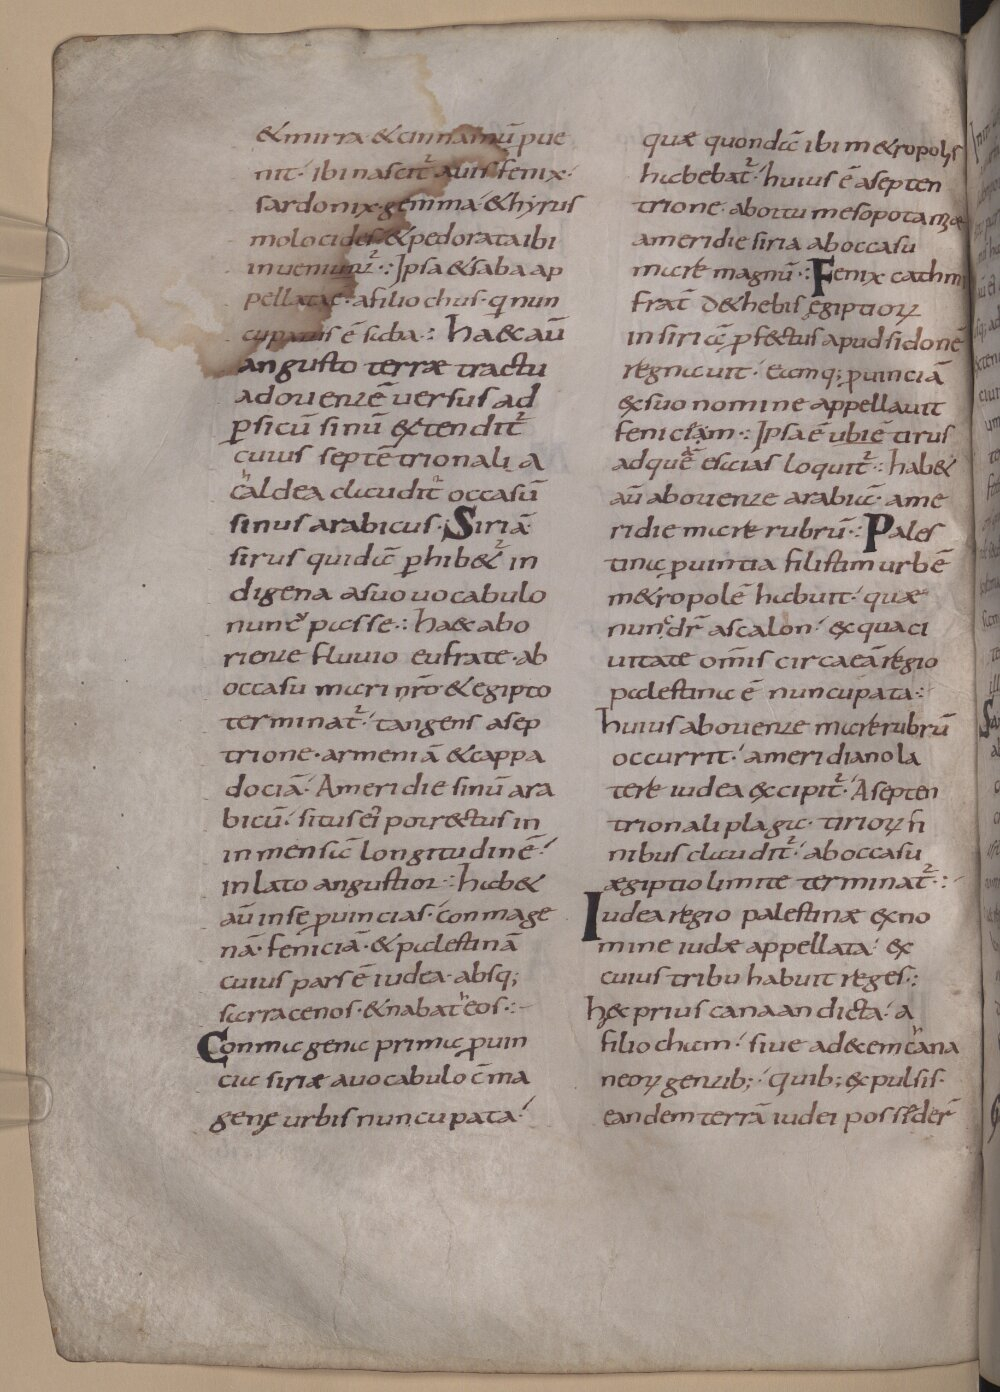 &mirra &cinnamū pue
nit· ibi nascitᷣ auis fenix·
sardonix gemma· &hyrus
molocides &pedorata ibi
inueniuntᷣ·: Ipsa &saba ap
pellata· afilio chus· q nun
cupatus ē saba·: ha&c aū
angusto terræ tractu
adorienzē uersus ad
psicū sinū extenditᷣ
cuius septētrionalia
caldea claudit occasū
sinus arabicus· Siriā
sirus quidā phib&ᷣ in
digena asuo uocabulo
nuncupasse·: ha&c abo
rienze fluuio eufrate· ab
occasu mari nr̄o &egipto
terminatᷣ· tangens asep
trione· armeniā &cappa
dociā· Ameridie sinū ara
bicū· situs eiᷣ porrectus in
inmensā longitudinē·
inlato angustior·: hab&
aū inse puincias· conmage
na· feniciā· &palestinā
cuius pars ē iudea· absq;
sarracenos· &nabat͑eos·:-
Conmagena prima puin
cia siriæ auocabulo c̄ma
genę urbis nuncupata·
quæ quondā ibi m&ropolis
habebatᷣ· huius ē asepten
trione· abortu mesopotamiæ
ameridie siria aboccasu
mare magnū·: Fenix cathmi
frat̄ dethebis ęgiptiorꝝ
insiriā pfectus apud sidonē
regnauit· eamq; puinciā
exsuo nomine appellauit
feniciam·: Ipsa ē ubi ē tirus
adquē esaias loquitᷣ·: hab&
aū aborienze arabiā· ame
ridie mare rubrū·: Pales
tina puintia filistim urbē
m&ropolē habuit· quæ
nunc dr̄ ascalon· exquaci
uitate om̄is circaeā regio
palestina ē nuncupata·:
huius aborienze mare rubrū
occurrit· ameridiano la
tere iudea excipitᷣ· Asepten
trionali plaga· tiriorꝝ fi
nibus clauditᷣ· aboccasu
ægiptio limite terminatᷣ·:
Iudea regio palestinæ exno
mine iudæ appellata· ex
cuius tribu habuit reges·:
hęc prius canaan dicta· a
filio cham· siue adecem cͪana
neorꝝ genzib;· quib; expulsis·
eandem terrā iudei posseder̄